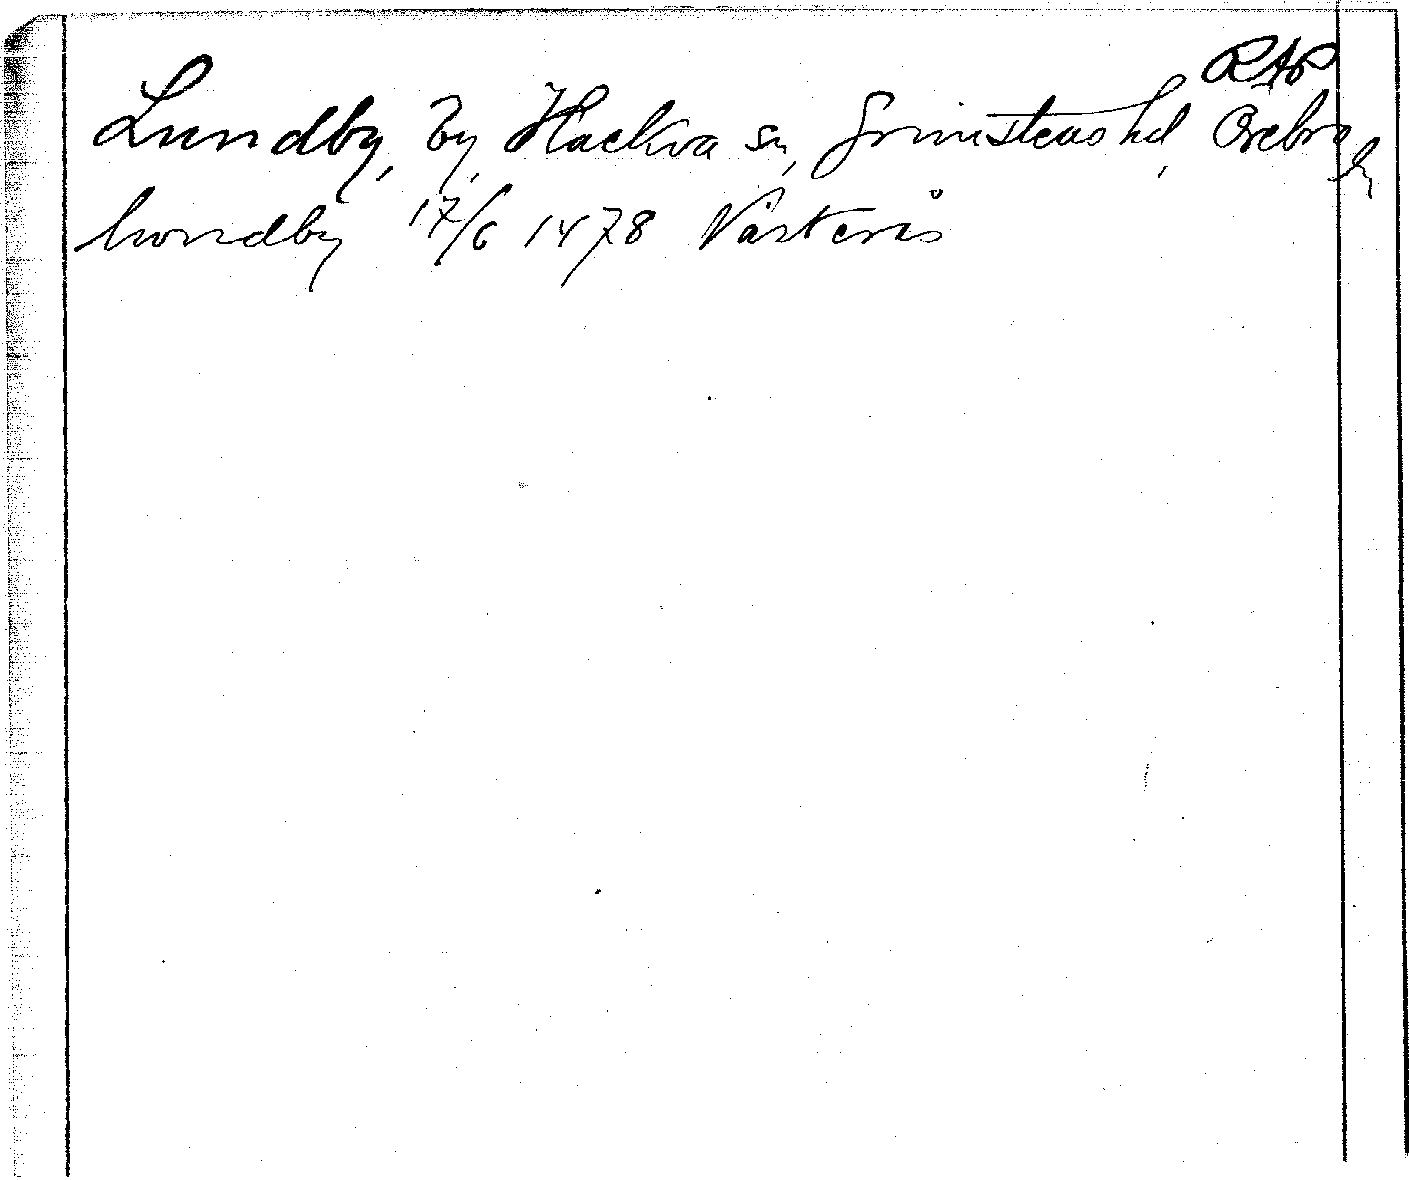 RAP
Lundby, by, Hackva sn, Grimstens hd, Örebro ln
lwndby 17/6 1478 Västerås